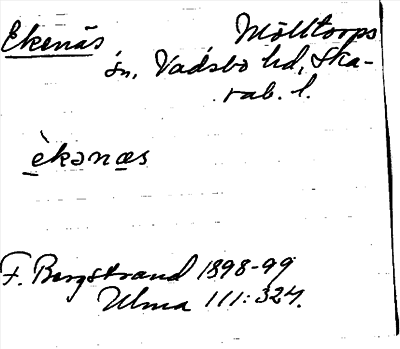 Ekenäs Mölltorps
sn, Vadsbo hd, Ska-
rab. l.
èkənæs
F. Bergstrand 1898-99
Ulma 111:327.